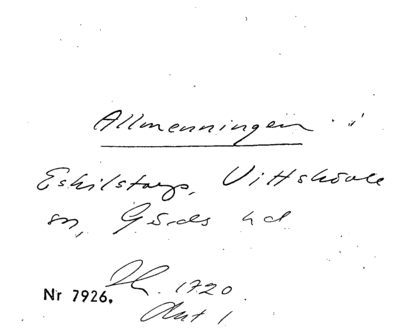 Allmenningen i
Eskilstorp, Vittskövle
sn, Gärds hd
1720
Nr 7926.
Akt 1